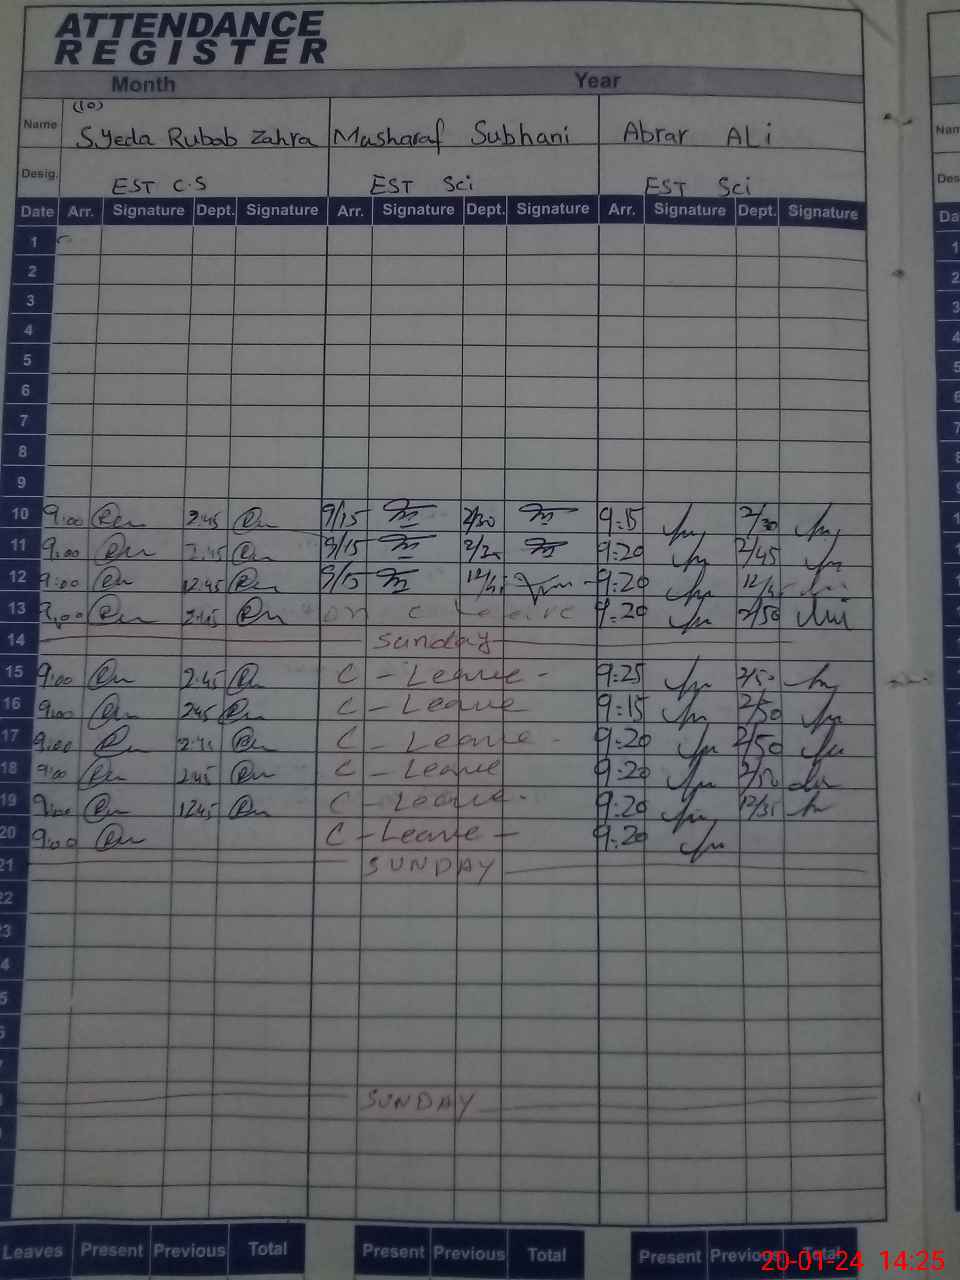 ATTENDANCE
REGISTER
Month Year
(10)
Name Syeda Rubab Zahra Musharaf Subhani Abrar ALi
Desig. EST C.S EST Sci EST Sci
Date Arr. Signature Dept. Signature Arr. Signature Dept. Signature Arr. Signature Dept. Signature
1
2
3
4
5
6
7
8
9
10 9:00 2:45 9/15 2/30 9:15 2/30
11 9:00 2:45 9/15 2/30 9:20 2/45
12 9:00 12:45 9/15 9:20
13 9:00 2:45 on C Leave 9:20 2/50
14 Sunday
15 9:00 2:45 C - Leave - 9:25 2/50
16 9:00 2:45 C - Leave 9:15 2/50
17 9:00 2:45 C - Leave - 9:20 2/50
18 9:00 2:45 C - Leave 9:20 2/50
19 9:00 12:45 C - Leave - 9:20 12/35
20 9:00 C - Leave - 9:20
21 SUNDAY
22
3
4
5
SUNDAY
Leaves Present Previous Total Present Previous Total Present Previous Total
20-01-24 14:25